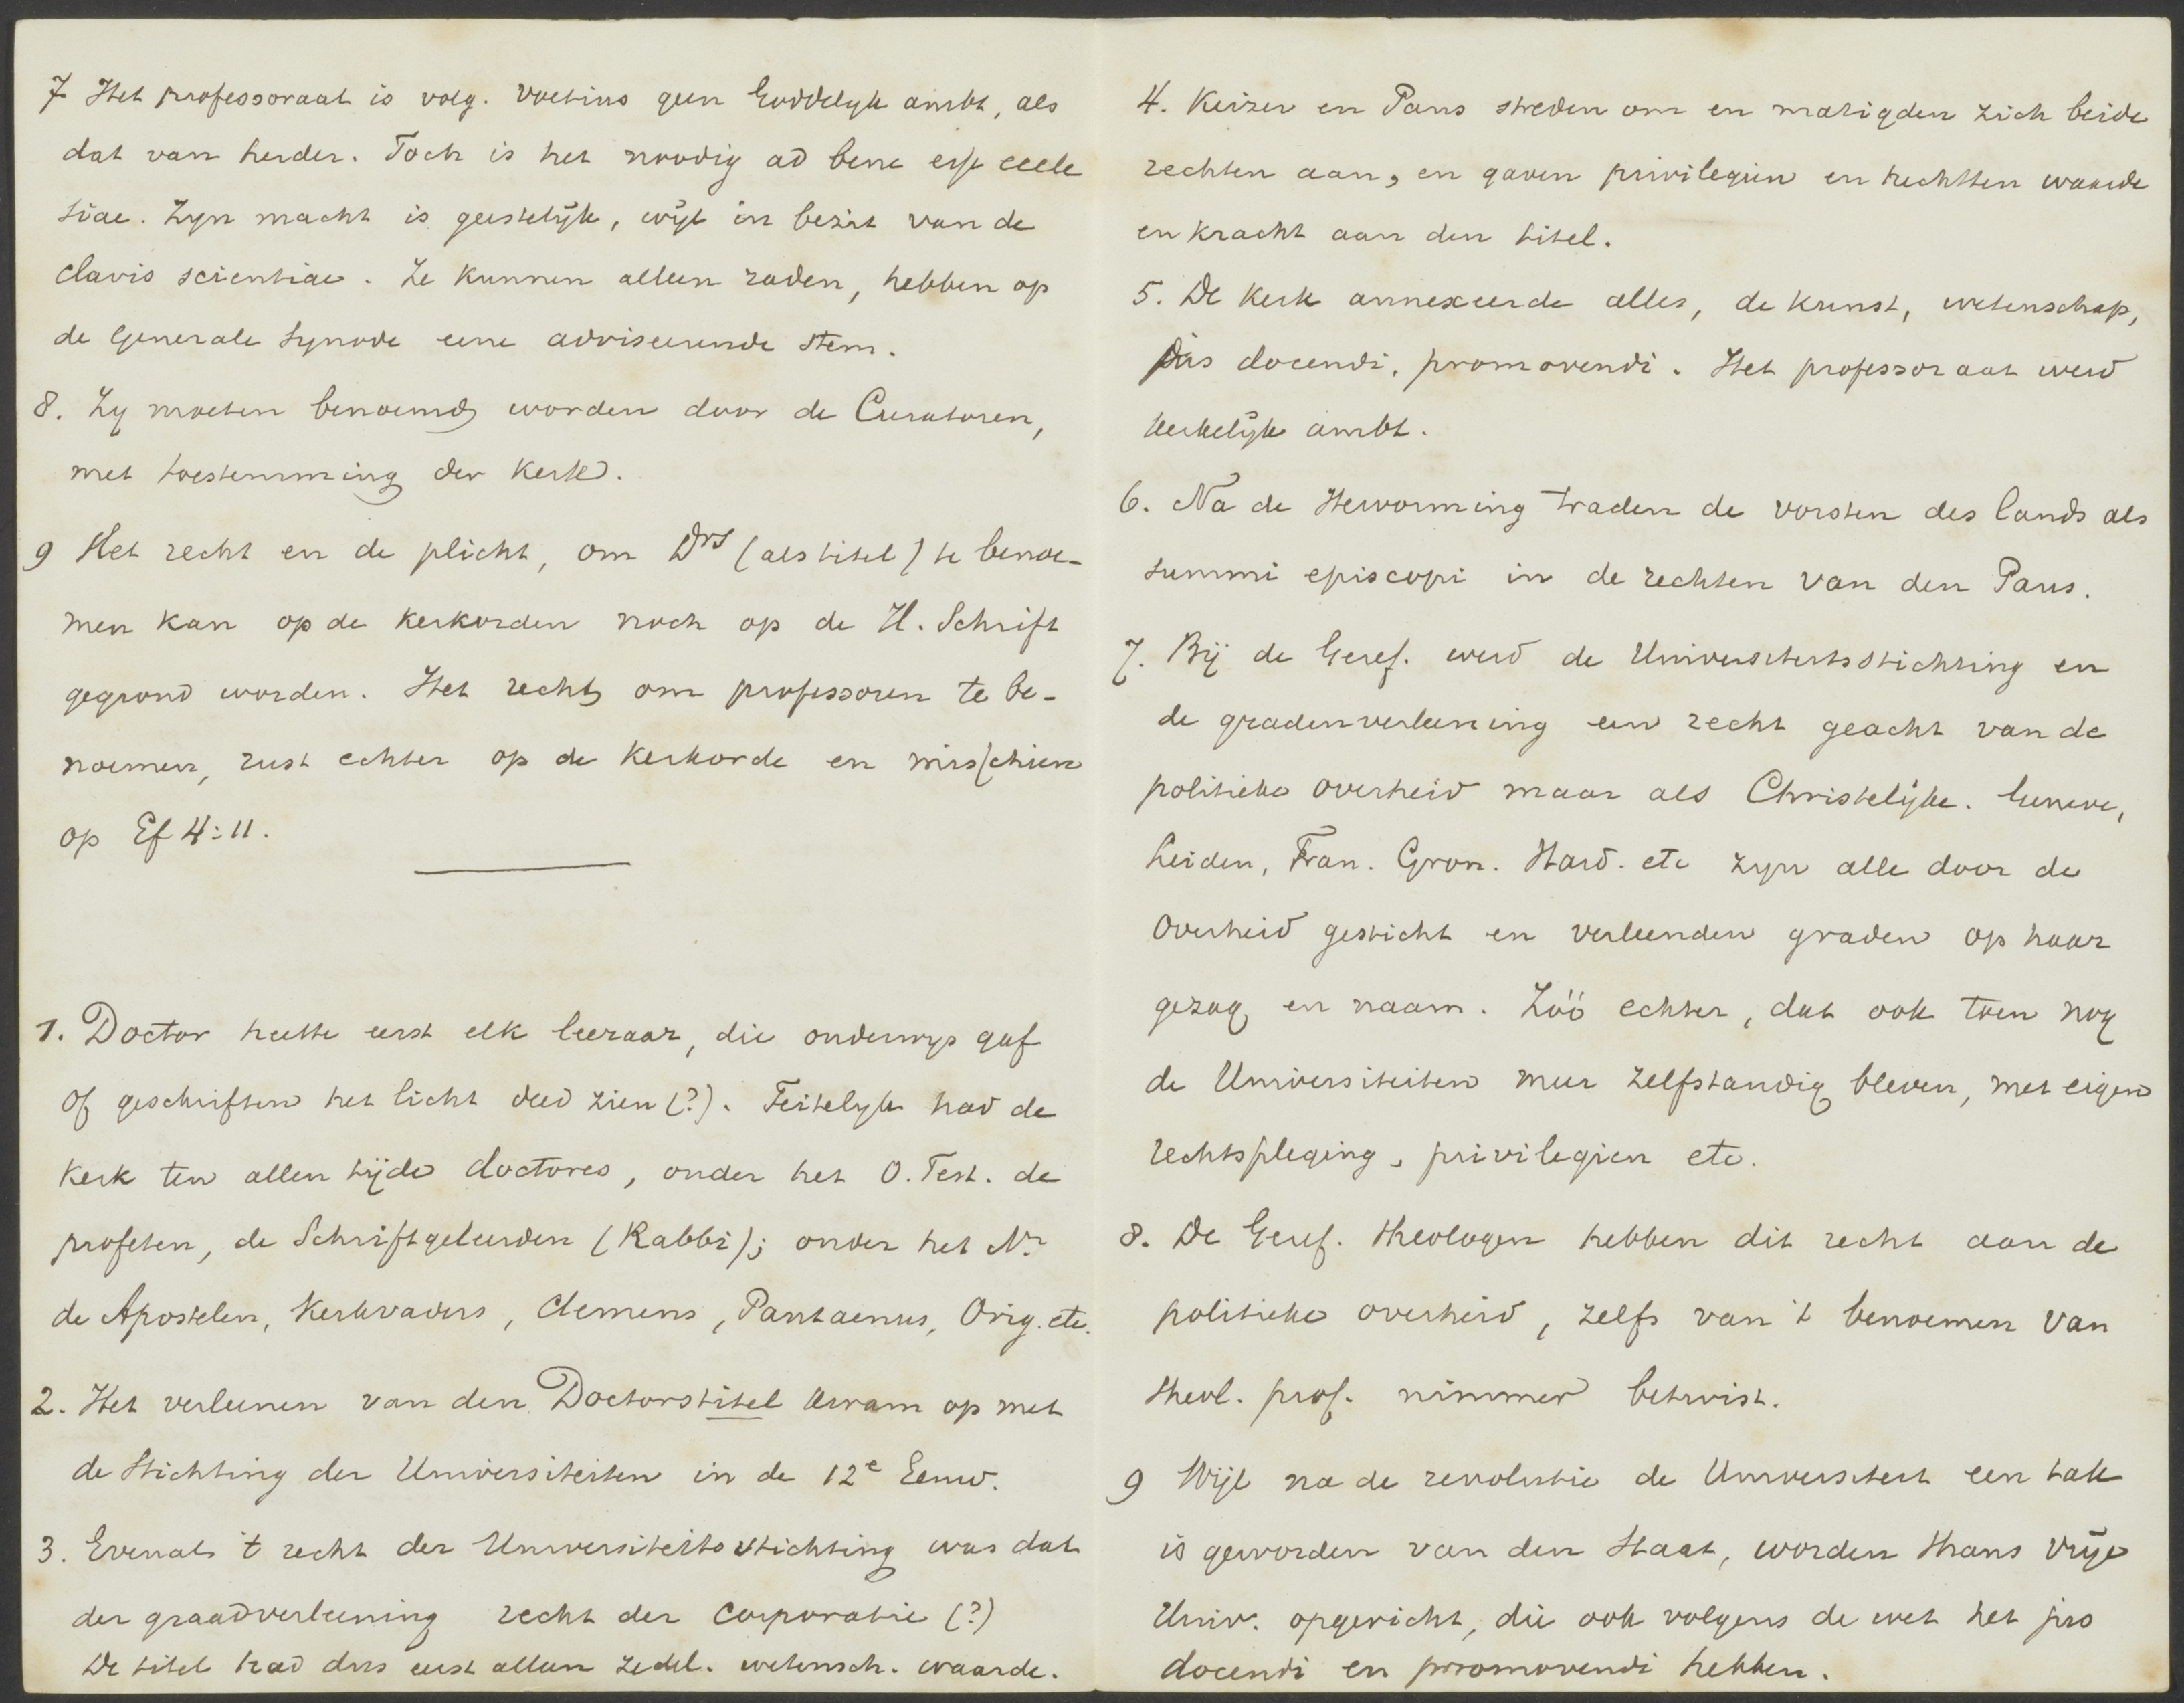 7 Het professoraat is volg. Voetius geen Goddelyk ambt, als
dat van herder. Toch is het noodig ad bene esse eccle
siae. Zyn macht is geestelijk, wijl in bezit van de
clavis scientiae. Ze kunnen alleen raden, hebben op
de Generale Synode eene adviseerende stem.
8. Zy moeten benoemd worden door de Curatoren,
met toestemming der Kerk.
9 Het recht en de plicht, om Drs (als titel) te benoe-
men kan op de kerkorden noch op de H. Schrift
gegrond worden. Het recht om professoren te be-
noemen, rust echter op de Kerkorde en misschien
op Ef 4:11.
1. Doctor heette eerst elk leeraar, die onderwys gaf
of geschriften het licht deed zien (?). Feitelyk had de
Kerk ten allen tijde doctores, onder het O. Test. de
profeten, de Schriftgeleerden (Rabbi); onder het N.
de Apostelen, Kerkvaders, Clemens, Pantaenus, Orig. etc.
2. Het verleenen van den Doctorstitel kwam op met
de Stichting der Universiteiten in de 12e Eeuw.
3. Evenals 't recht der Universiteitsstichting was dat
der graadverleening recht der Corporatie (?)
De titel had dus eerst alleen zedel. wetensch. waarde.
4. Keizer en Paus streden om en matigden zich beide
rechten aan, en gaven privilegiën en hechtten waarde
en kracht aan den titel.
5. De Kerk annexeerde alles, de kunst, wetenschap,
jus docendi, promovendi. Het professoraat werd
kerkelijk ambt.
6. Na de Hervorming traden de vorsten des lands als
summi episcopi in de rechten van den Paus.
7. Bij de Geref. werd de Universiteitsstichting en
de gradenverleening een recht geacht van de
politieke overheid maar als Christelijke. Geneve,
Leiden, Fran. Gron. Hard. etc zyn alle door de
Overheid gesticht en verleenden graden op haar
gezag en naam. Zóó echter, dat ook toen nog
de Universiteiten meer zelfstandig bleven, met eigen
rechtspleging, privilegien etc.
8. De Geref. theologen hebben dit recht aan de
politieke overheid, zelfs van 't benoemen van
theol. prof. nimmer betwist.
9 Wijl na de revolutie de Universiteit een tak
is geworden van den Staat, worden thans vrije
Univ. opgericht, die ook volgens de wet het jus
docendi en promovendi hebben.